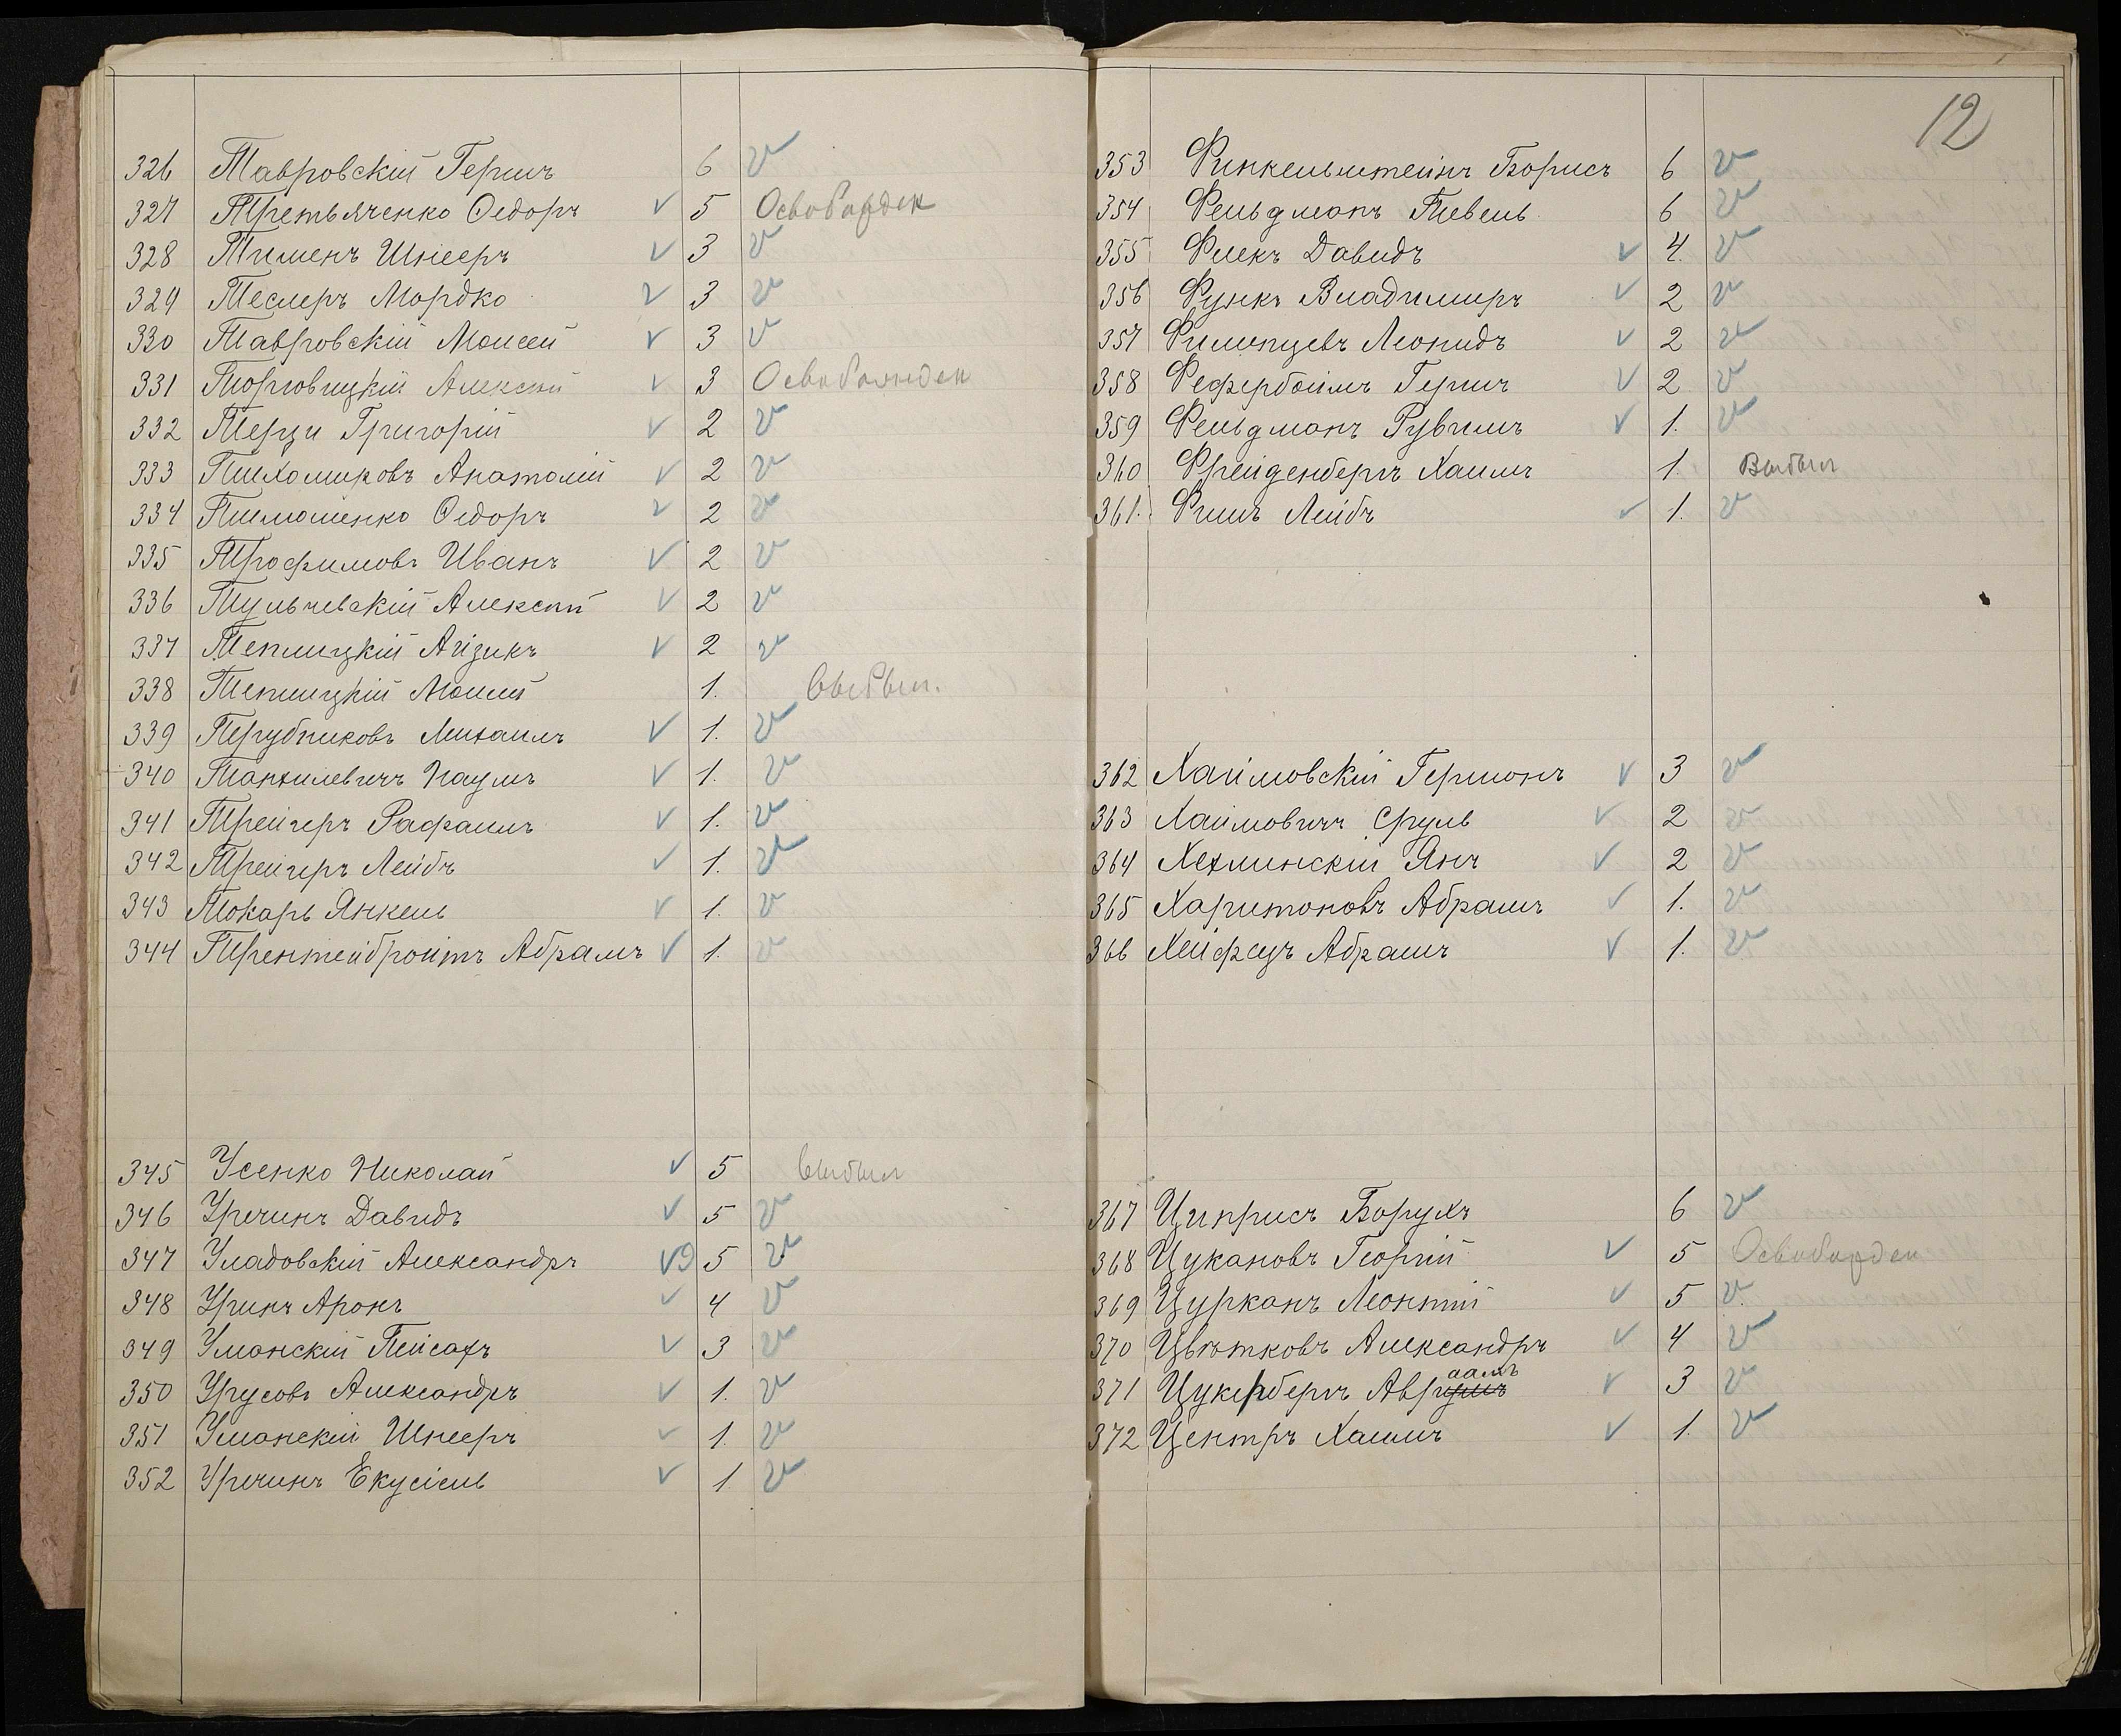 326 Тавровскій Гершъ 6 v
327 Третьяченко Ѳедоръ v 5 Освобожден
328 Тименъ Шнееръ v 3 v
329 Теслеръ Мордко v 3 v
330 Тавровскій Моисей v 3 v
331 Торговицкій Алексѣй v 3 Освобожден
332 Терзи Григорій v 2 v
333 Тихомировъ Анатолій v 2 v
334 Тимошенко Ѳедоръ v 2 v
335 Трофимовъ Иванъ v 2 v
336 Тульчевскій Алексѣй v 2 v
337 Теплицкій Айзикъ v 2 v
338 Теплицкій Моисей 1. выбыл.
339 Трубниковъ Михаилъ v 1. v
340 Танхилевичъ Наумъ v 1. v
341 Трейгеръ Рафаилъ v 1. v
342 Трейгеръ Лейбъ v 1. v
343 Токарь Янкель v 1. v
344 Трентейбройтъ Абрамъ v 1. v
345 Усенко Николай v 5 выбыл
346 Уречинъ Давидъ v 5 v
347 Уладовскій Александръ v 5 v
348 Уринъ Аронъ v 4 v
349 Уманскій Пейсахъ v 3 v
350 Урусовъ Александръ v 1. v
351 Уманскій Шнееръ v 1. v
352 Уречинъ Екусіель v 1 v
12
353 Финкельштейнъ Борисъ 6 v
354 Фельдманъ Тевель 6 v
355 Флекъ Давидъ v 4. v
356 Функъ Владимиръ v 2 v
357 Филипцевъ Леонидъ v 2 v
358 Фефербоймъ Гершъ v 2 v
359 Фельдманъ Рувимъ v 1. v
360 Фрейденбергъ Хаимъ 1. Выбыл
361. Фишъ Лейбъ v 1. v
362 Хаймовскій Германъ v 3 v
363 Хаимовичъ Сруль v 2 v
364 Хехлинскій Янъ v 2 v
365 Харитоновъ Абрамъ v 1. v
366 Хейфецъ Абрамъ v 1. v
367 Циприсъ Борухъ 6 v
368 Цукановъ Георгій v 5 Освобожден
369 Цурканъ Леонтій v 5 v
370 Цвѣтковъ Александръ v 4 v
371 Цукербергъ Авраамъ v 3 v
372 Центръ Хаимъ v 1. v